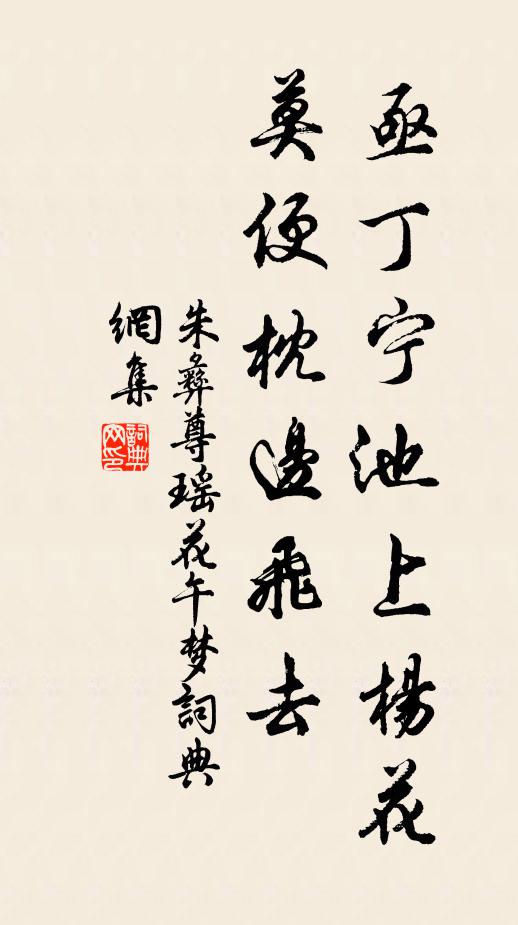 亟丁宁池上楊花
莫便枕邊飛去
朱彝尊瑶花午梦詞典
網集
詞典
网印